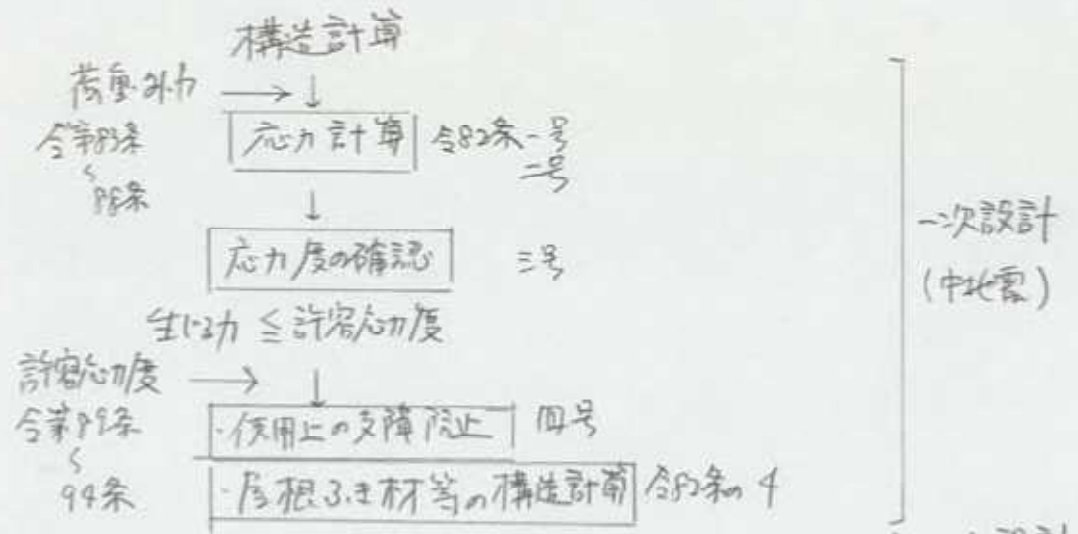 構造計算
荷重・外力 → ↓
令第83条
〜
88条
応力計算 令82条一号
二号
↓
応力度の確認 三号
生じる力 ≦ 許容応力度
許容応力度 → ↓
令第89条
〜
94条
・使用上の支障防止 四号
・屋根ふき材等の構造計算 令82条の4
一次設計
(中地震)